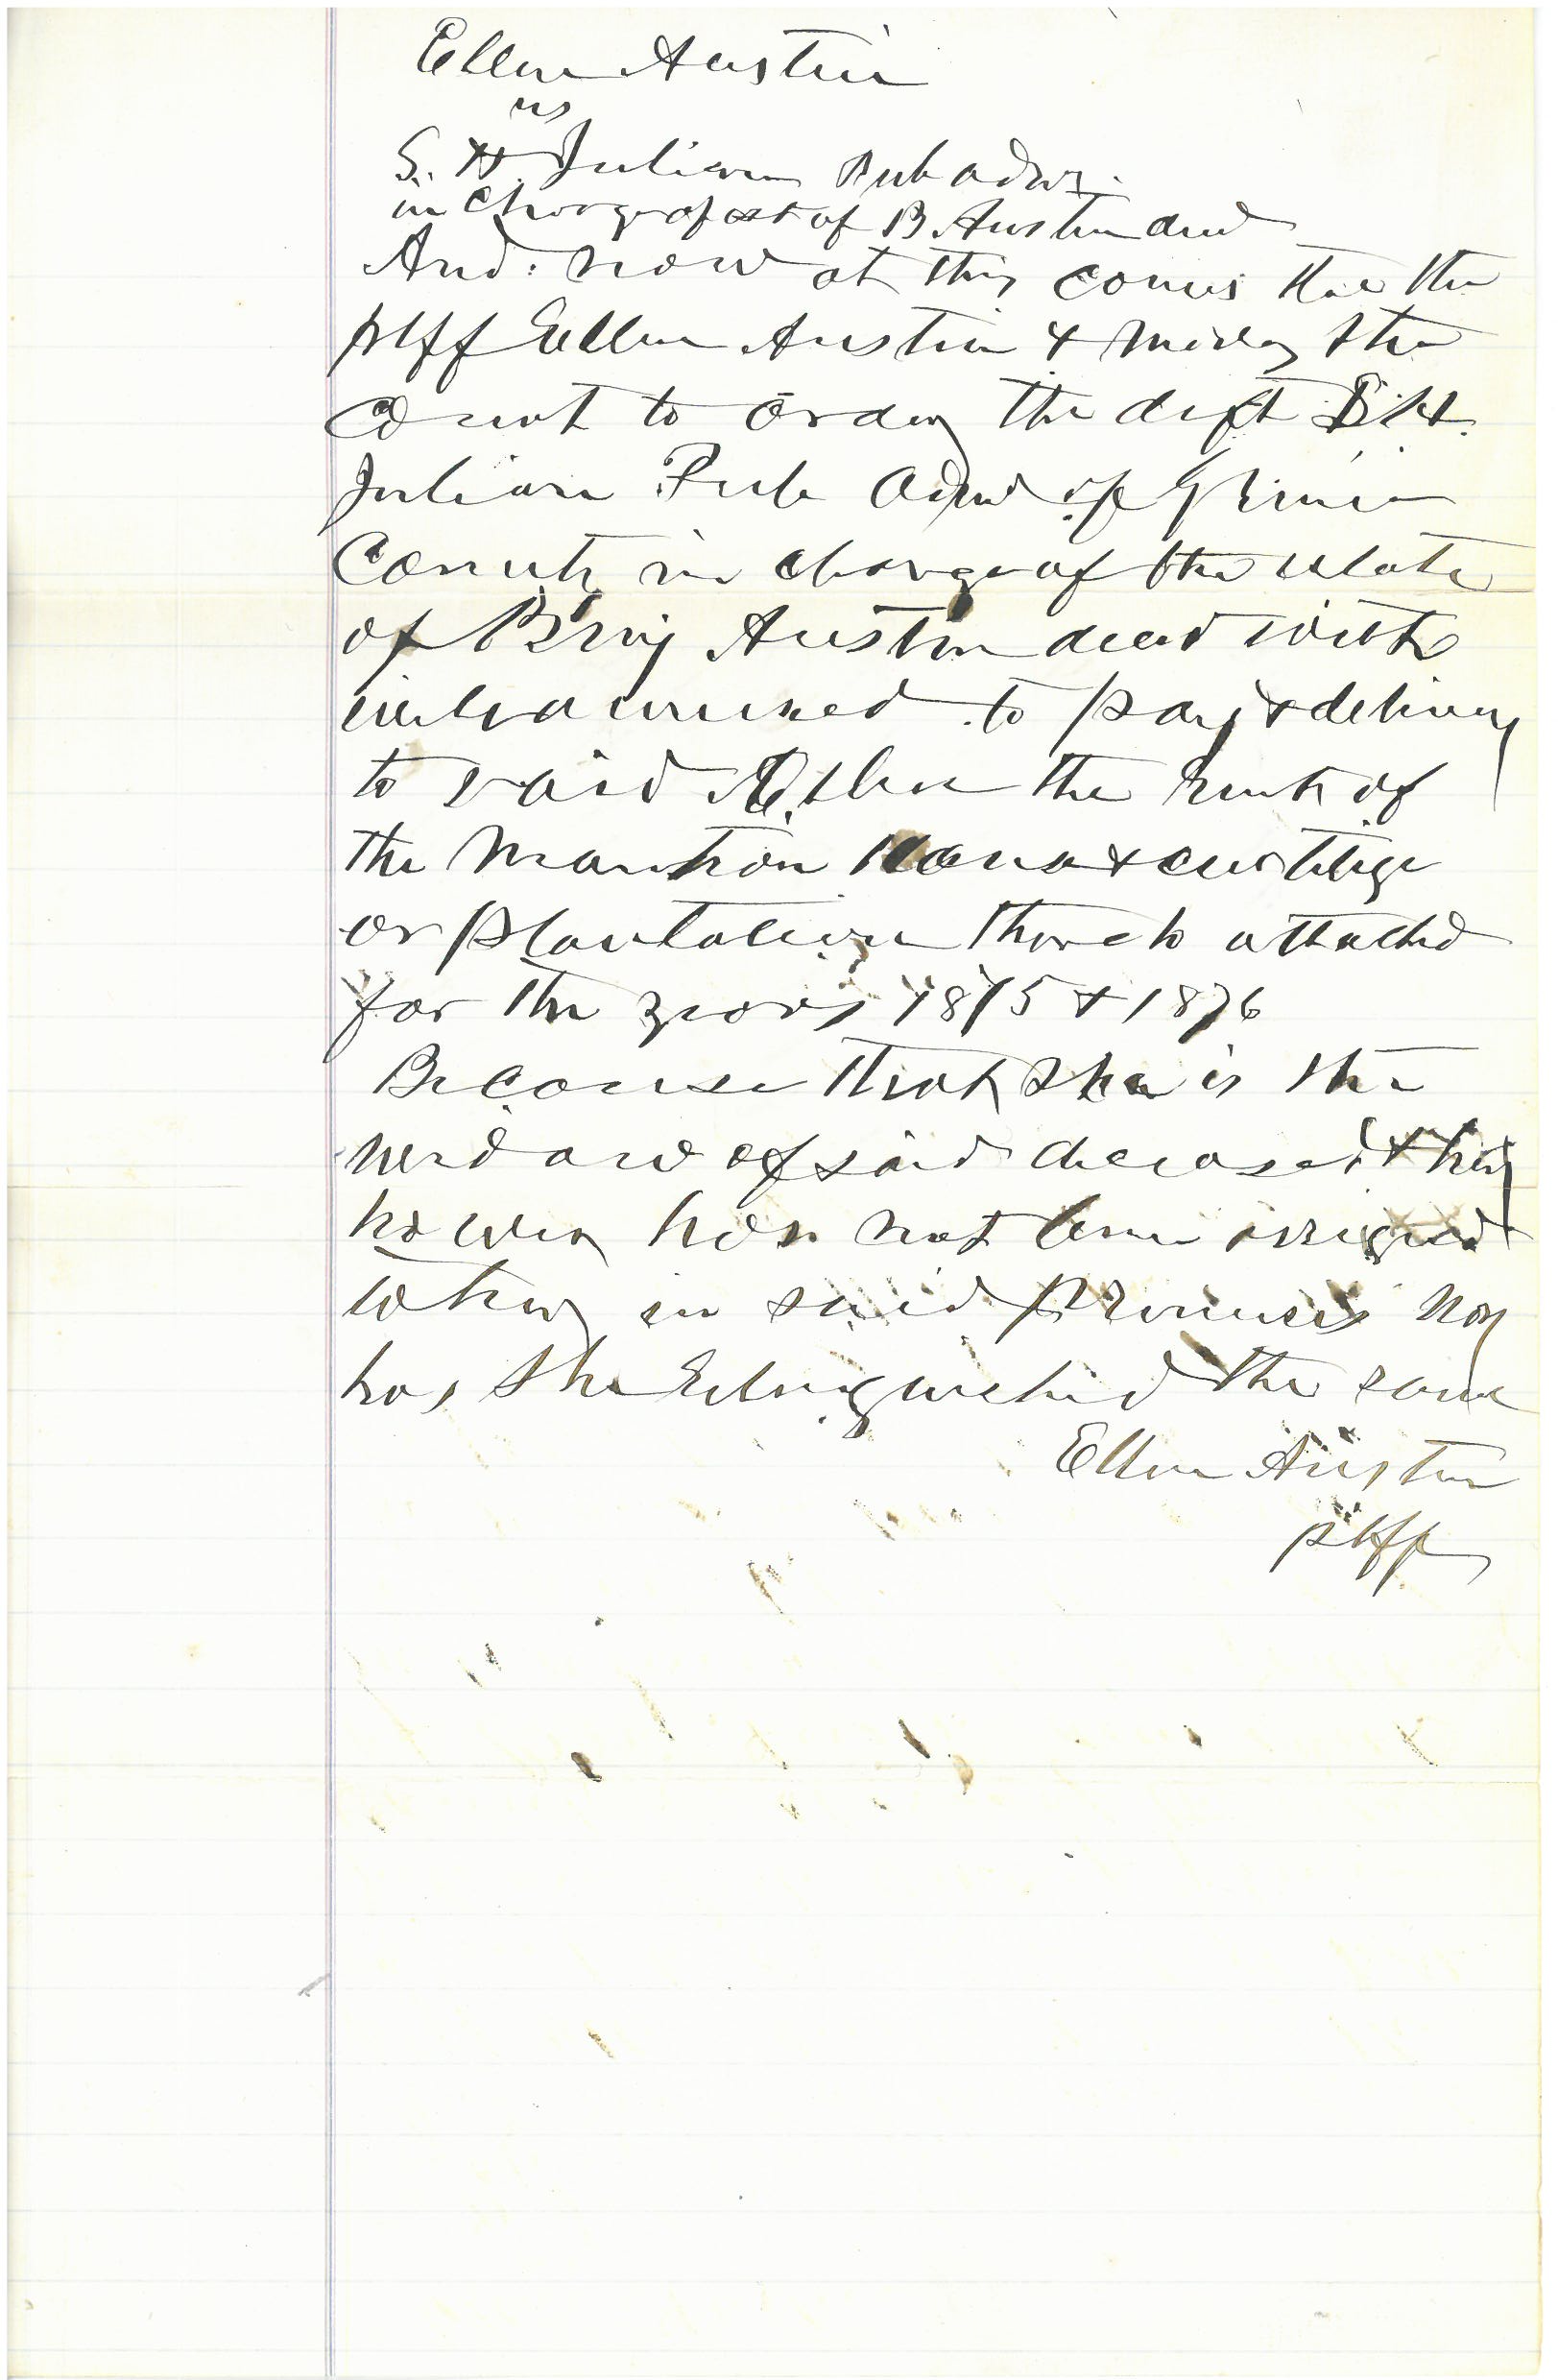 Ellen Austin
vs
S. H. Julian Pub admr.
in Charge of est of B. Austin decd
And now at this comes the the
plff Ellen Austin & moves the
Court to order the deft S. H.
Julian Pub Admr of Greene
County in charge of the estate
of Benj Austin decd with
will annexed to pay & deliver
to said Ellen the rents of
the Mansion House &
or plantation thereto attached
for the years 1875 & 1876
Because that she is the
widow of said deceased & her
dower has not been assigned
to her in said premises nor
has she relinquished the same
Ellen Austin
plff